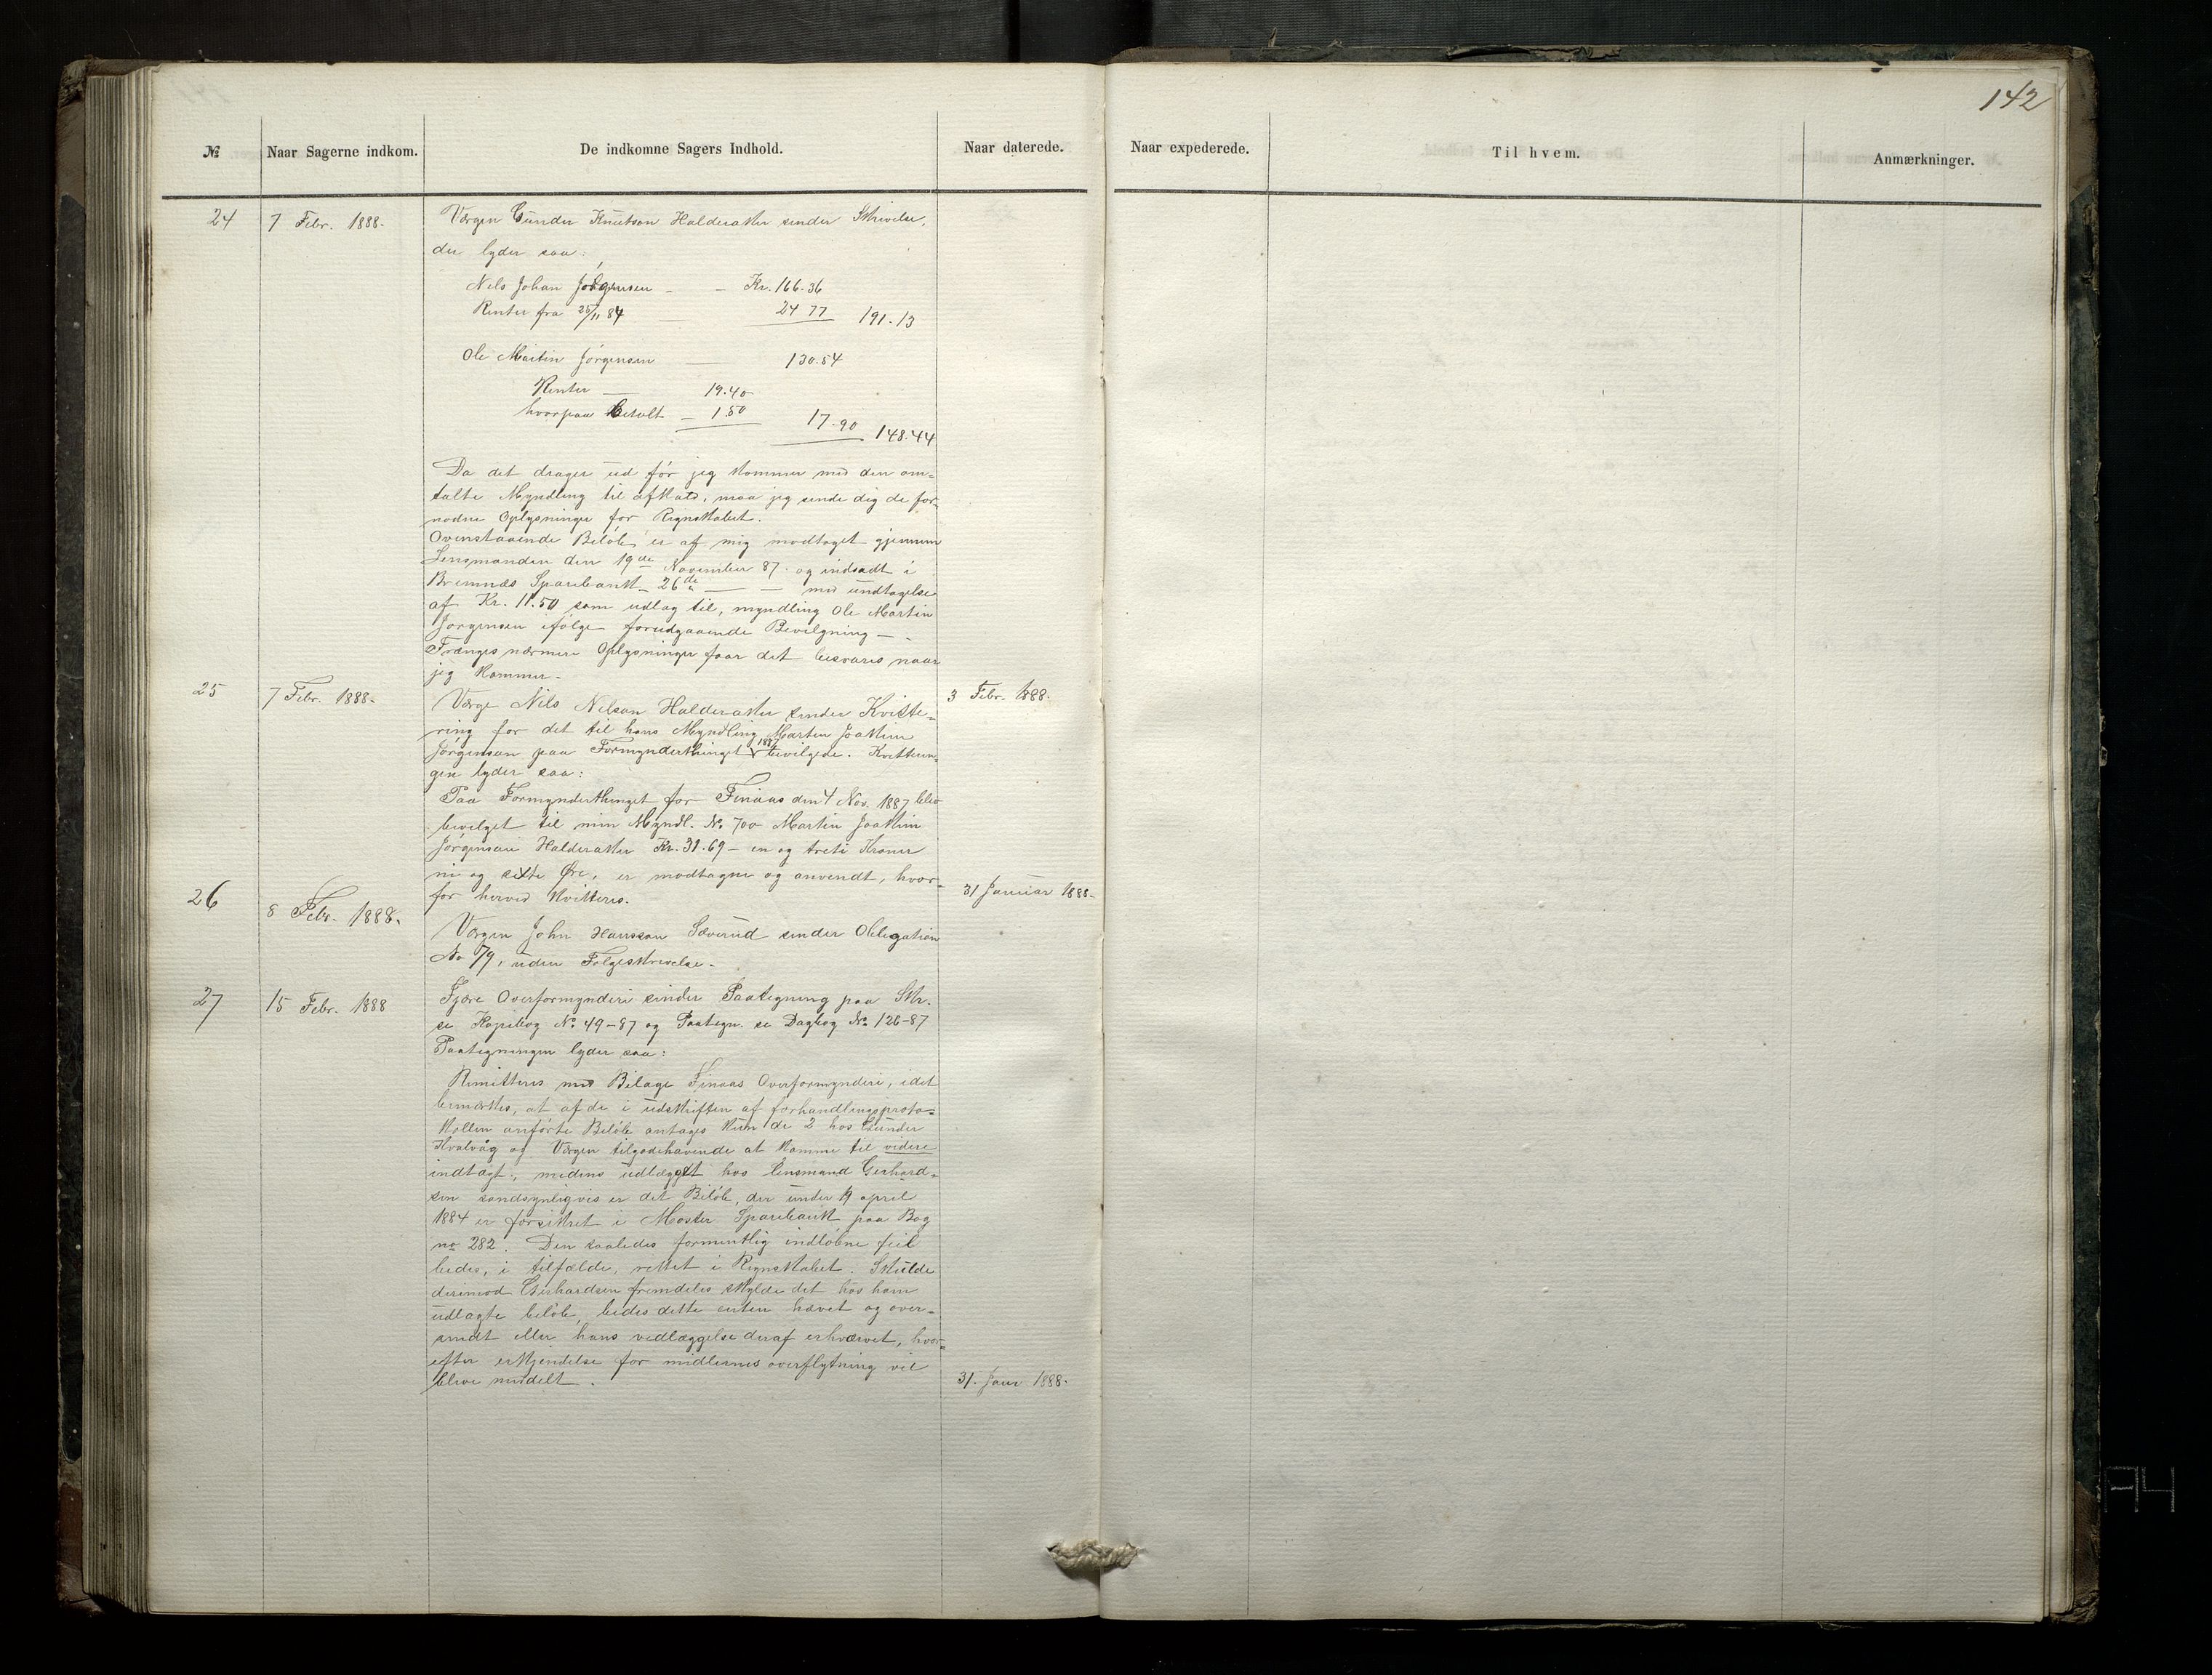 142
№ Naar Sagerne indkom. De indkomne Sagers Indhold. Naar daterede. Naar expederede. Til hvem. Anmærkninger.
24 7 Febr. 1888. Værgen Gunder Knutson Halderaker sender Skrivelse,
der lyder saa:
Nils Johan Jørgensen – – Kr. 166.36
Renter fra 25/11 84 — 24 77 191.13
Ole Martin Jørgensen — 130.54
Renter — 19.40
hvorpaa betalt – 1.50 17.90 148.44
Da det drager ud før jeg kommer med den om-
talte Myndling til afkald, maa jeg sende dig de for-
nødne Oplysninger for Regnskabet.
Ovenstaaende Beløb er af mig modtaget gjennem
Lensmanden den 19de November 87. og indsadt i
Bremnæs Sparebank – 26de — — med undtagelse
af Kr. 11.50 som udlag til, myndling Ole Martin
Jørgensen ifølge forudgaaende Bevilgning — -
Trænges nærmere Oplysninger faar det besvares naar
jeg kommer -
25 7 Febr. 1888. Værge Nils Nilsen Halderaker sender Kvitte- 3 Febr. 1888.
ring for det til hans Myndling Martin Joakim
Jørgensen paa Formynderthinget 1887 bevilgede. Kvitterin-
gen lyder saa:
Paa Formynderthinget for Finaas den 4 Nov. 1887 blev
bevilget til min Myndl. No 700 Martin Joakim
Jørgensen Halderaker Kr. 31.69 – en og treti Kroner
ni og sexti Øre, er modtagne og anvendt, hvor-
for herved kvitteres.
26 8 Febr. 1888. 31 Januar 1888.
Værgen John Hansson Sæverud sender Obligation
No 79, uden Følgeskrivelse.
27 15 Febr. 1888 Fjære Overformynderi sender Paategning paa Skr.
se Kopibog No 49-87 og Paategn. se Dagbog No 126-87
Paategningen lyder saa:
Remitteres med Bilage Finaas Overformynderi, idet
bemærkes, at af de i udskriften af forhandlingsproto-
kollen anførte Beløb antages kun de 2 hos Gunder
Kvalvåg og Værgen tilgodehavende at komme til videre
indtægt, medens udlægget hos lensmand Gerhard-
sen sandsynligvis er det Beløb, der under 19 april
1884 er forsikret i Moster Sparebank paa Bog
no 282. Den saaledes formentlig indløbne feil
bedes, i tilfælde, rettet i Regnskabet. Skulde
derimod Gerhardsen fremdeles skylde det hos ham
udlagte beløb, bedes dette enten hævet og over-
sendt eller hans vedlæggelse deraf erhvervet, hvor-
efter erkjendelse for midlernes overflytning vil
blive meddelt. 31. Janr 1888.